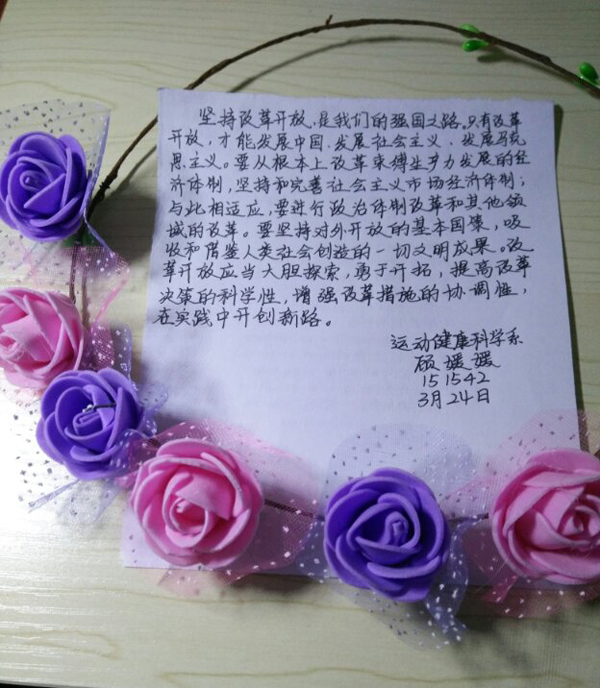 坚持改革开放,是我们的强国之路。只有改革
开放,才能发展中国、发展社会主义、发展马克
思主义。要从根本上改革束缚生产力发展的经
济体制,坚持和完善社会主义市场经济体制;
与此相适应,要进行政治体制改革和其他领
域的改革。要坚持对外开放的基本国策,吸
收和借鉴人类社会创造的一切文明成果。改
革开放应当大胆探索,勇于开拓,提高改革
决策的科学性,增强改革措施的协调性,
在实践中开创新路。
运动健康科学系
顾媛媛
151542
3月24日